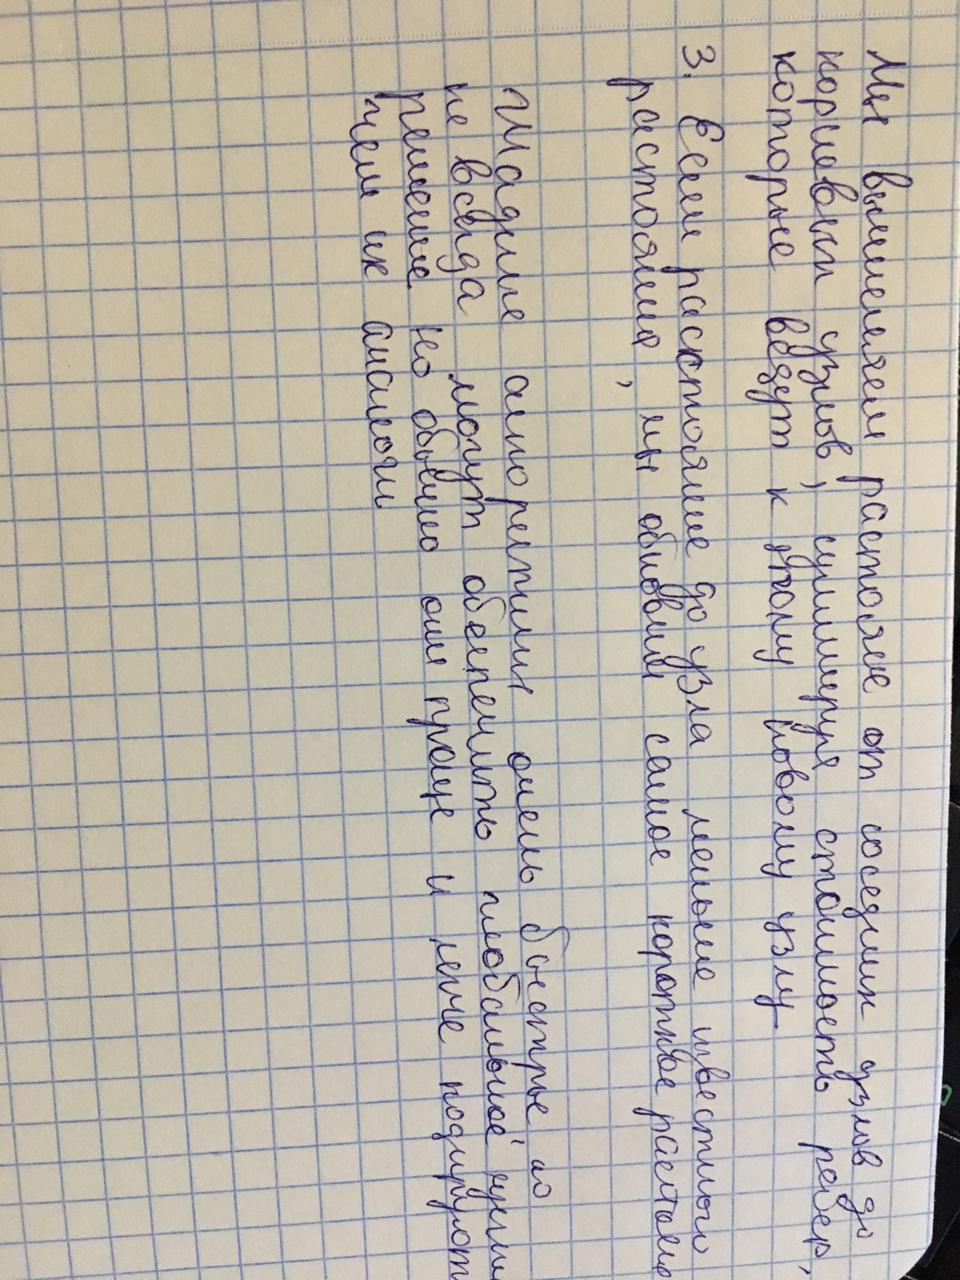 Мы вычисляем растояние от соседних узлов до
корневых узлов, суммируя стоимость ребер,
которые ведут к этому новому узлу
3. Если расстояние до узла меньше известного
растояния, мы обновим самое короткое растояние
Жадные алгоритмы очень быстрые но
не всегда могут обеспечить глобальное лучшее
решение. Но обычно они проще и легче кодируются
чем их аналоги